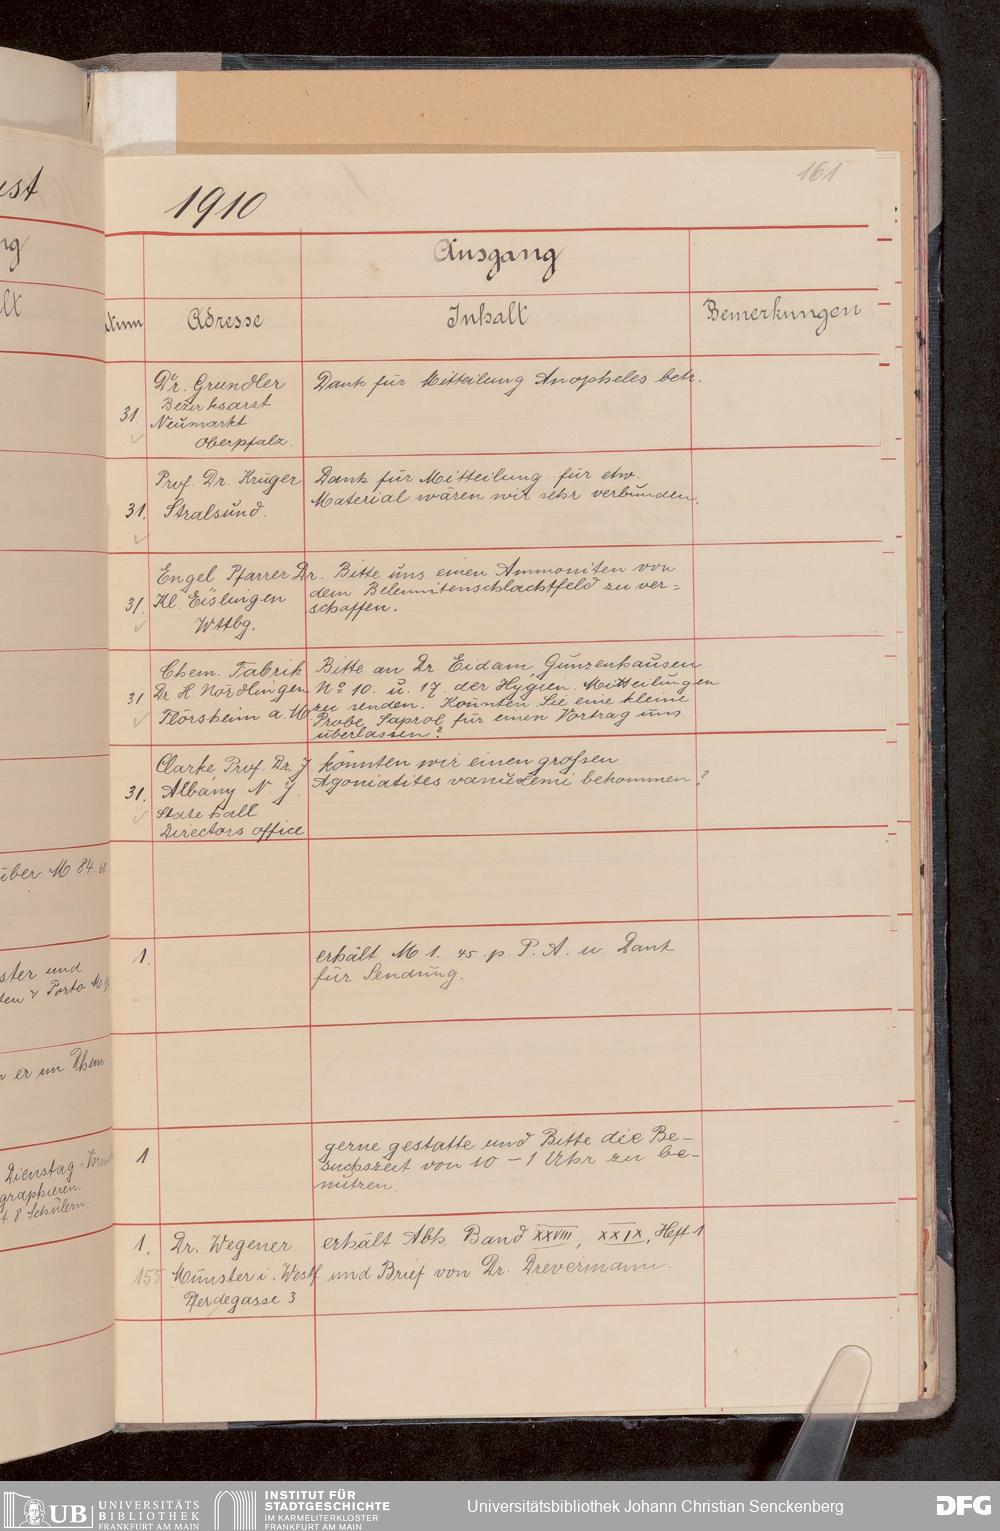 1910
161
Ausgang
Adresse
Inhalt
Bemerkungen
31.
Dr. Grundler
Bezirksarzt
Neumarkt
Oberpfalz.
Dank für Mitteilung Anopheles betr.
31.
Prof. Dr. Krüger
Stralsund.
Dank für Mitteilung. für etw.
Material wären wir sehr verbunden.
31.
Engel Pfarrer Dr.
Kl. Eislingen
Wttbg.
Bitte uns einen Ammoniten von
dem Belemnitenschlachtfeld zu ver=
schaffen.
31
Chem. Fabrik
Dr. H. Nördlingen
Flörsheim a. M
Bitte an Dr. Eidam, Gunzenhausen
No 10. u. 17. der Hygien. Mitteilungen
zu senden. Könnten Sie eine kleine
Probe Saprol für einen Vortrag uns
überlassen?
31.
Clarke, Prof. Dr. J
Albany N. Y.
State hall
Directors office
könnten wir einen großen
Agoniatites vanuxemi bekommen?
über M 84.
1.
erhält M 1. 45. p. P. A. u. Dank
für Sendung.
ster und
ten & Porto M
er im Rhein
1
gerne gestatte und Bitte die Be-
suchszeit von 10 – 1 Uhr zu be-
nützen.
Dienstag-
graphieren.
8 Schülern.
1.
155
Dr. Wegener
Münster i. Westf
Pferdegasse 3
erhält Abh. Band XXVIII, XXIX, Heft 1
und Brief von Dr. Drevermann.
UB UNIVERSITÄTS
BIBLIOTHEK
FRANKFURT AM MAIN
INSTITUT FÜR
STADTGESCHICHTE
IM KARMELITERKLOSTER
FRANKFURT AM MAIN
Universitätsbibliothek Johann Christian Senckenberg
DFG